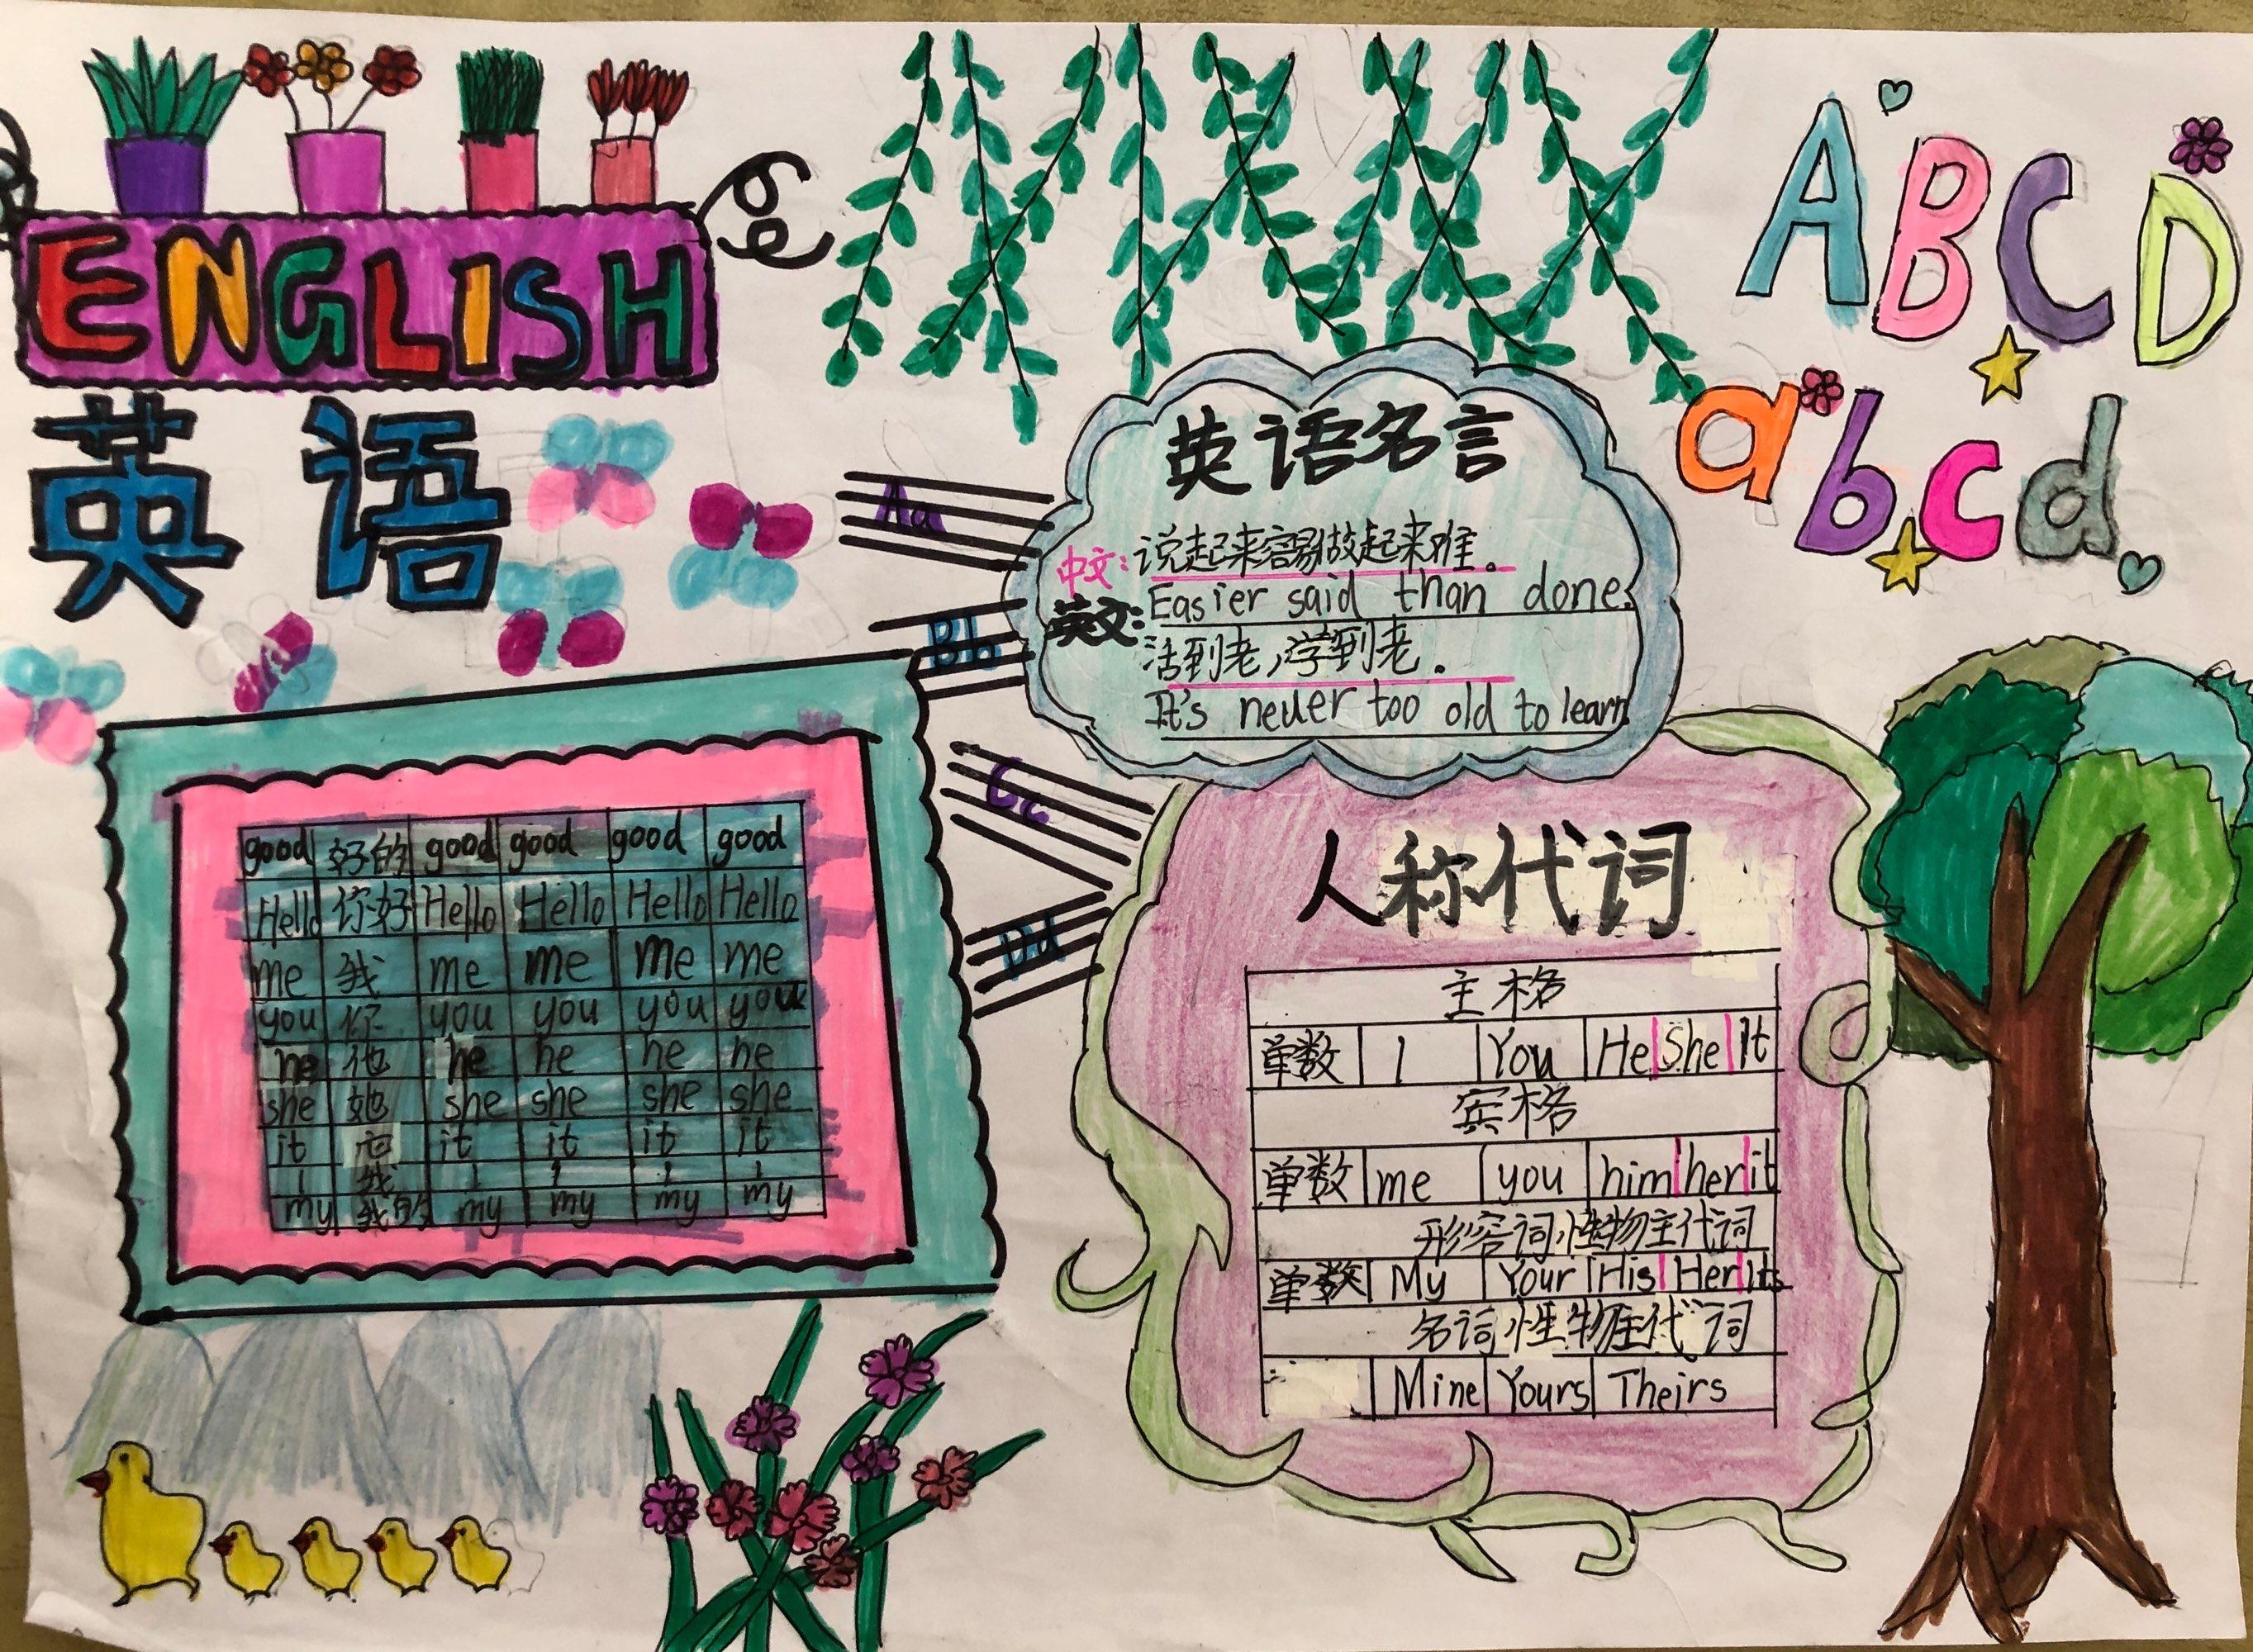 ENGLISH
英语
ABCD
abcd
Aa
Bb
Cc
Dd
英语名言
中文:说起来容易做起来难。
英文:Easier said than done.
活到老,学到老.
It's never too old to learn
good 好的 good good good good
Hello 你好 Hello Hello Hello Hello
me 我 me me me me
you 你 you you you you
he 他 he he he he
she 她 she she she she
it 它 it it it it
I 我 I I I I
my 我的 my my my my
人称代词
主格
单数 I You He She It
宾格
单数 me you him her it
形容词性物主代词
单数 My Your His Her Its
名词性物主代词
Mine Yours Theirs